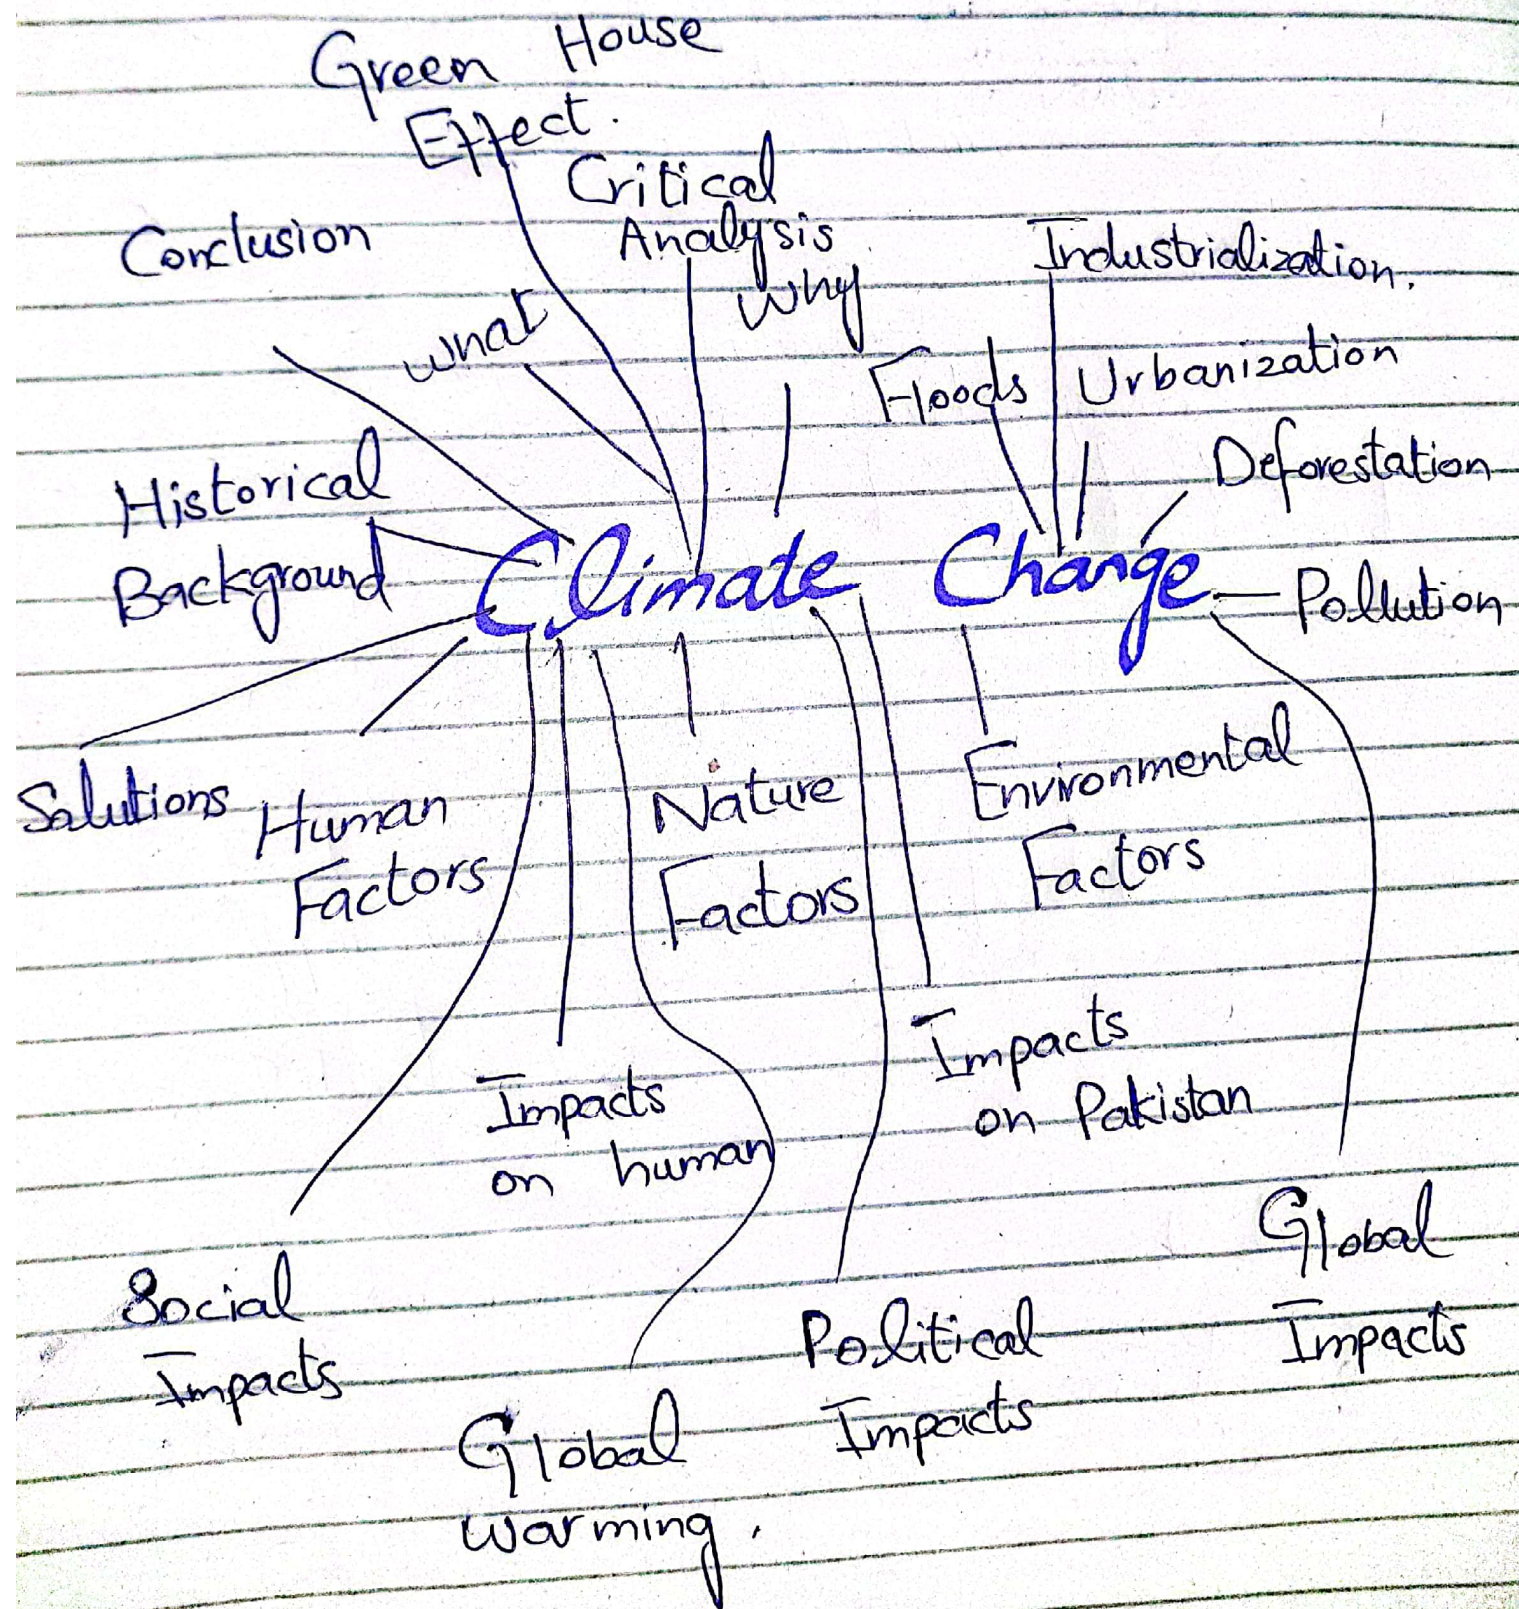 Green House
Effect.
Critical
Analysis
Why
Conclusion
what
Industrialization.
Floods
Urbanization
Deforestation
Historical
Background
Climate Change
Pollution
Solutions
Human
Factors
Nature
Factors
Environmental
Factors
Impacts
on human
Impacts
on Pakistan
Social
Impacts
Global
warming.
Political
Impacts
Global
Impacts